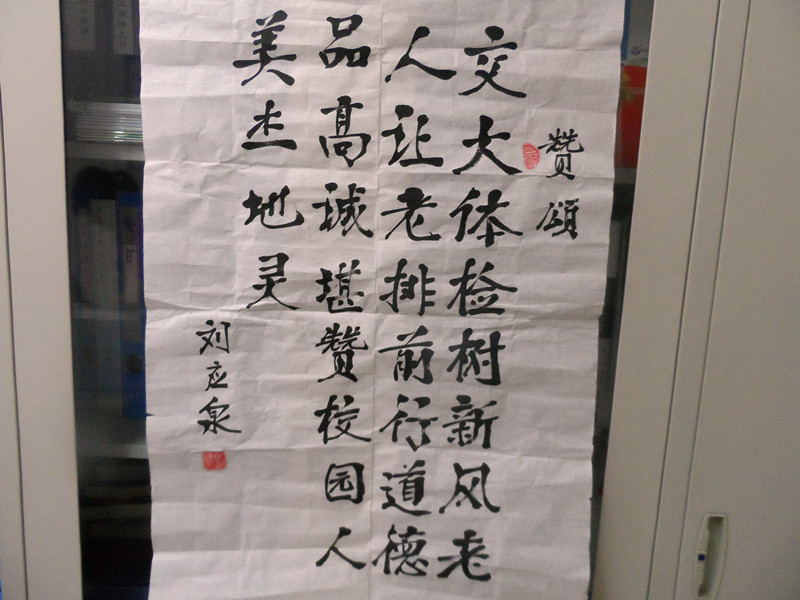 赞颂
交大体检树新风老
人让老排前行道德
品高诚堪赞校园人
美杰地灵
刘应泉